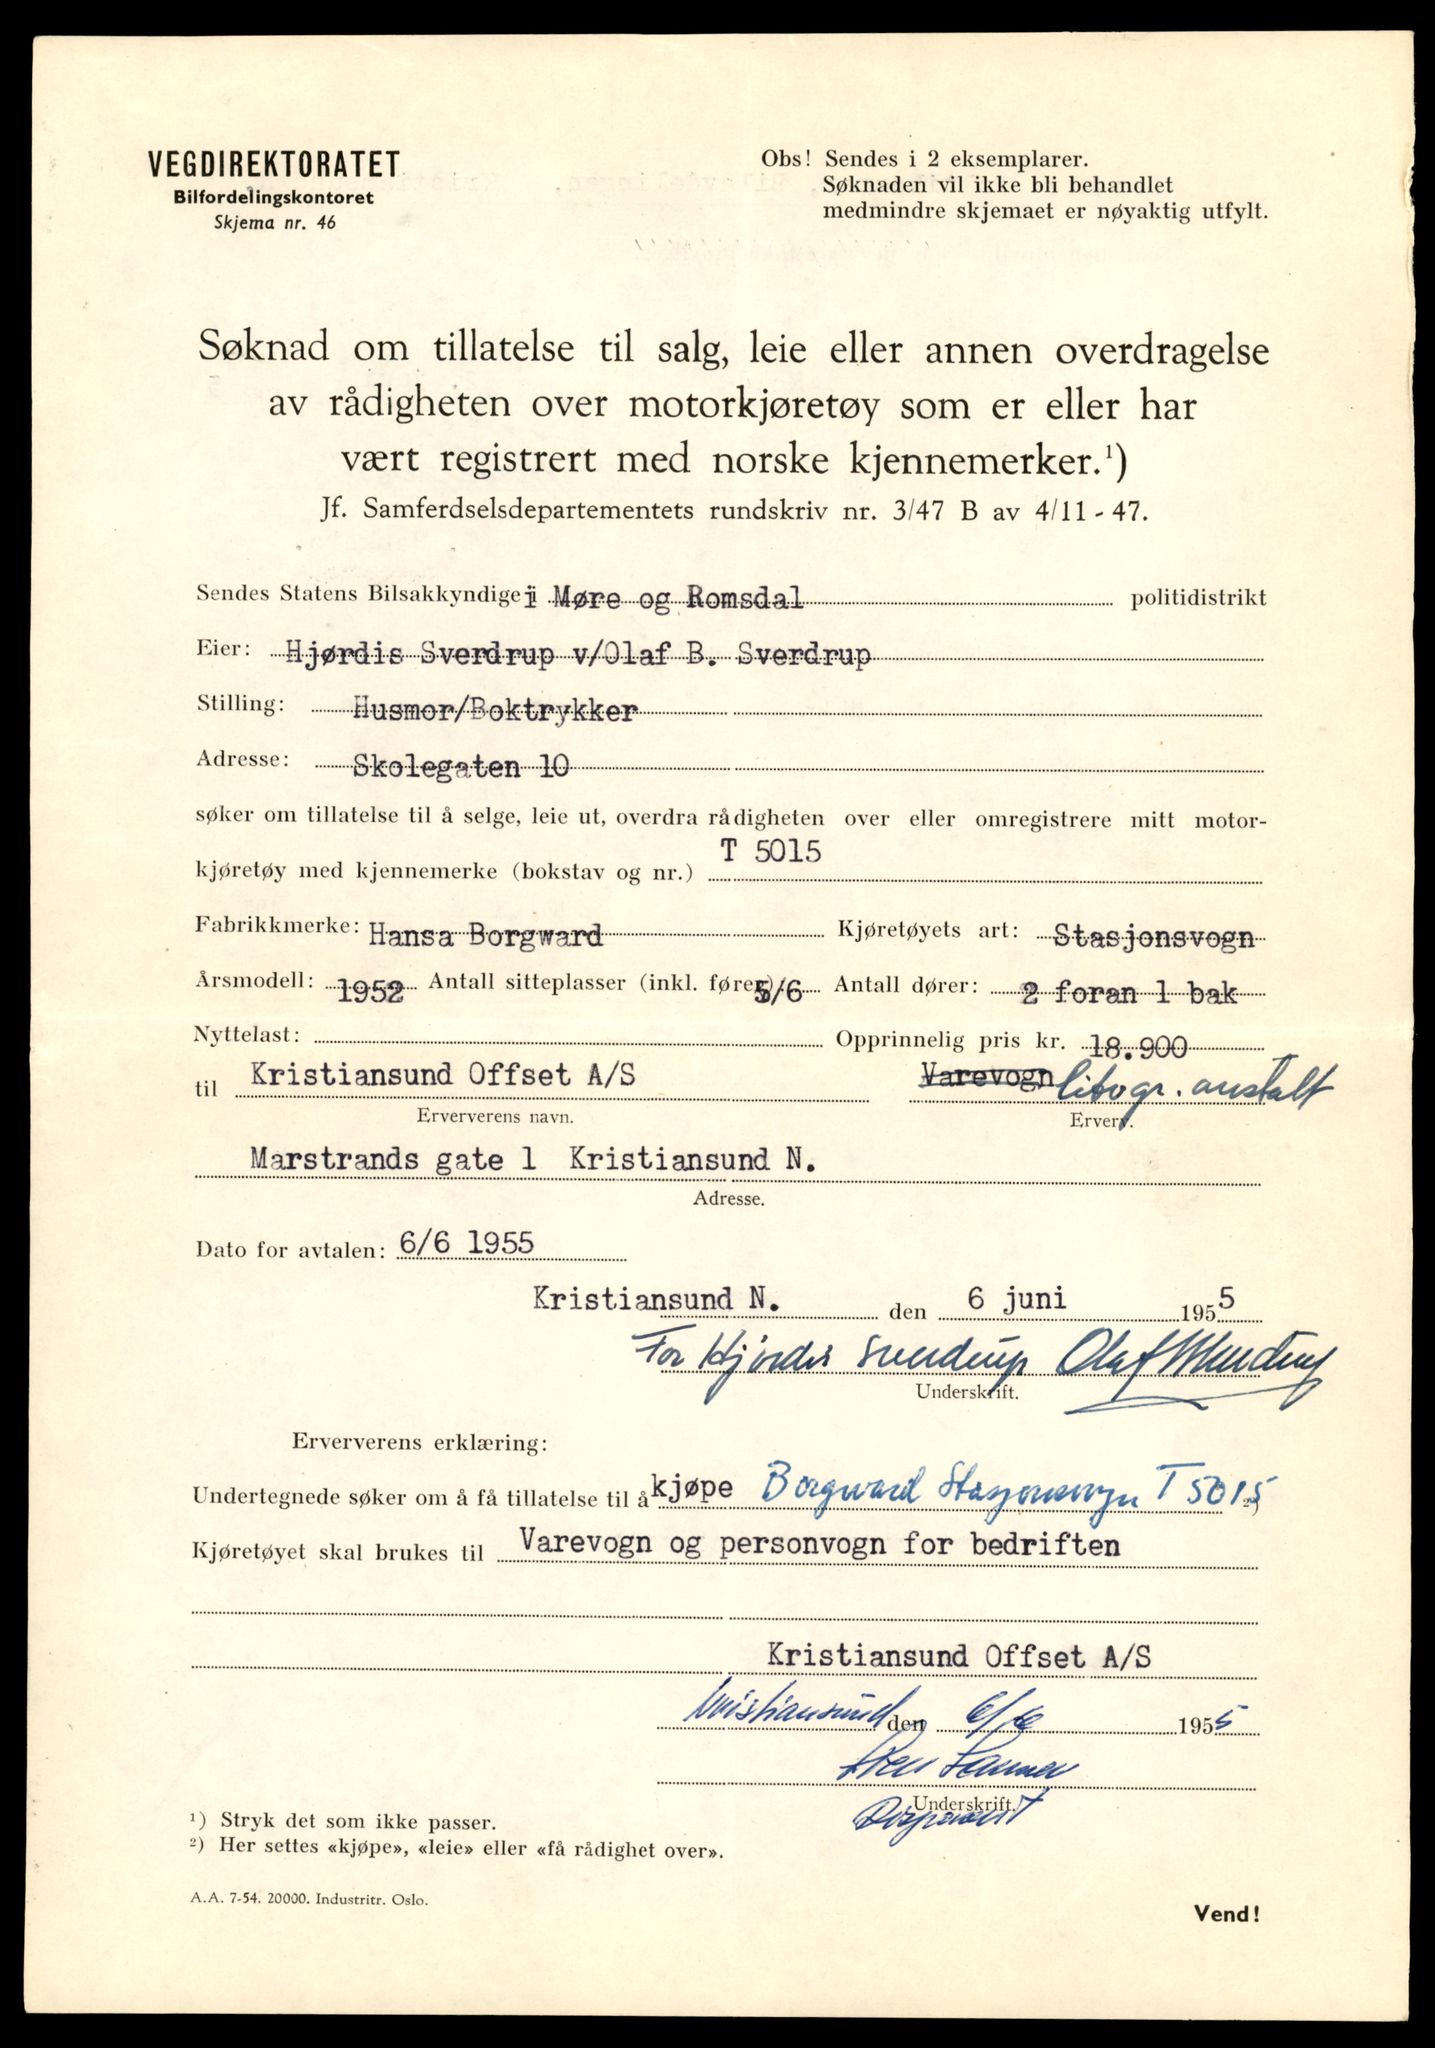 VEGDIREKTORATET
Bilfordelingskontoret
Skjema nr. 46
Obs! Sendes i 2 eksemplarer.
Søknaden vil ikke bli behandlet
medmindre skjemaet er nøyaktig utfylt.
Søknad om tillatelse til salg, leie eller annen overdragelse
av rådigheten over motorkjøretøy som er eller har
vært registrert med norske kjennemerker.¹)
Jf. Samferdselsdepartementets rundskriv nr. 3/47 B av 4/11 - 47.
Sendes Statens Bilsakkyndige i Møre og Romsdal politidistrikt
Eier: Hjørdis Sverdrup v/Olaf B. Sverdrup
Stilling: Husmor/Boktrykker
Adresse: Skolegaten 10
søker om tillatelse til å selge, leie ut, overdra rådigheten over eller omregistrere mitt motor-
kjøretøy med kjennemerke (bokstav og nr.) T 5015
Fabrikkmerke: Hansa Borgward Kjøretøyets art: Stasjonsvogn
Årsmodell: 1952 Antall sitteplasser (inkl. fører): 5/6 Antall dører: 2 foran 1 bak
Nyttelast: Opprinnelig pris kr. 18.900
til Kristiansund Offset A/S Varevogn litogr. anstalt
Erververens navn. Erverv.
Marstrands gate 1 Kristiansund N.
Adresse.
Dato for avtalen: 6/6 1955
Kristiansund N. den 6 juni 1955
For Hjørdis Sverdrup Olaf Sverdrup
Underskrift.
Erververens erklæring:
Undertegnede søker om å få tillatelse til å kjøpe Borgward Stasjonsvogn T 5015 ²)
Kjøretøyet skal brukes til Varevogn og personvogn for bedriften
Kristiansund Offset A/S
Kristiansund den 6/6 1955
Underskrift.
Disponent
¹) Stryk det som ikke passer.
²) Her settes «kjøpe», «leie» eller «få rådighet over».
A.A. 7-54. 20000. Industritr. Oslo.
Vend!